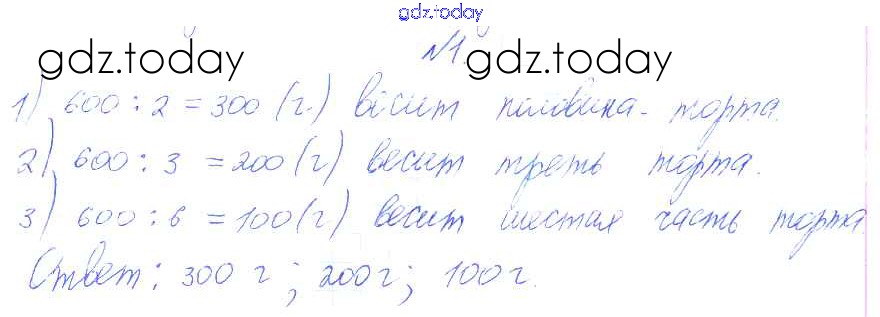 gdz.today
№1.
gdz.today gdz.today
1) 600 : 2 = 300 (г.) весит половина торта.
2) 600 : 3 = 200 (г) весит треть торта.
3) 600 : 6 = 100 (г) весит шестая часть торта.
Ответ: 300 г; 200 г; 100 г.